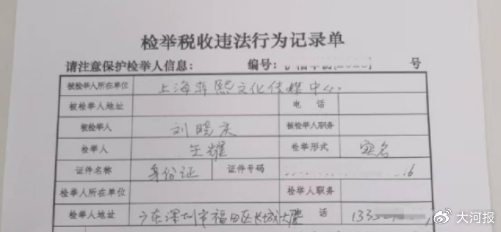 检举税收违法行为记录单
请注意保护检举人信息: 编号:
被检举人所在单位 上海菲熙文化传媒中心
被检举人地址 电话
被检举人 刘晓庆 被检举人职务
检举人 王耀 检举形式 实名
证件名称 身份证 证件号码 6
检举人所在单位 检举人职务
检举人地址 广东深圳市福田区长城大厦 话 133
大河报